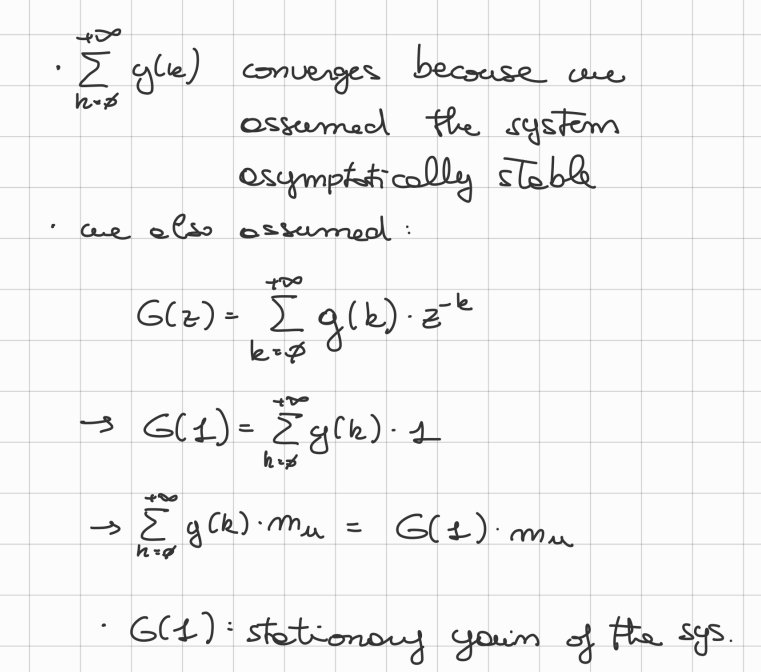 · +∞ ∑ k=0 g(k) converges because we
assumed the system
asymptotically stable
· we also assumed :
G(z) = +∞ ∑ k=0 g(k) · z^-k
→ G(1) = +∞ ∑ k=0 g(k) · 1
→ +∞ ∑ k=0 g(k) · mu = G(1) · mu
· G(1) : stationary gain of the sys.